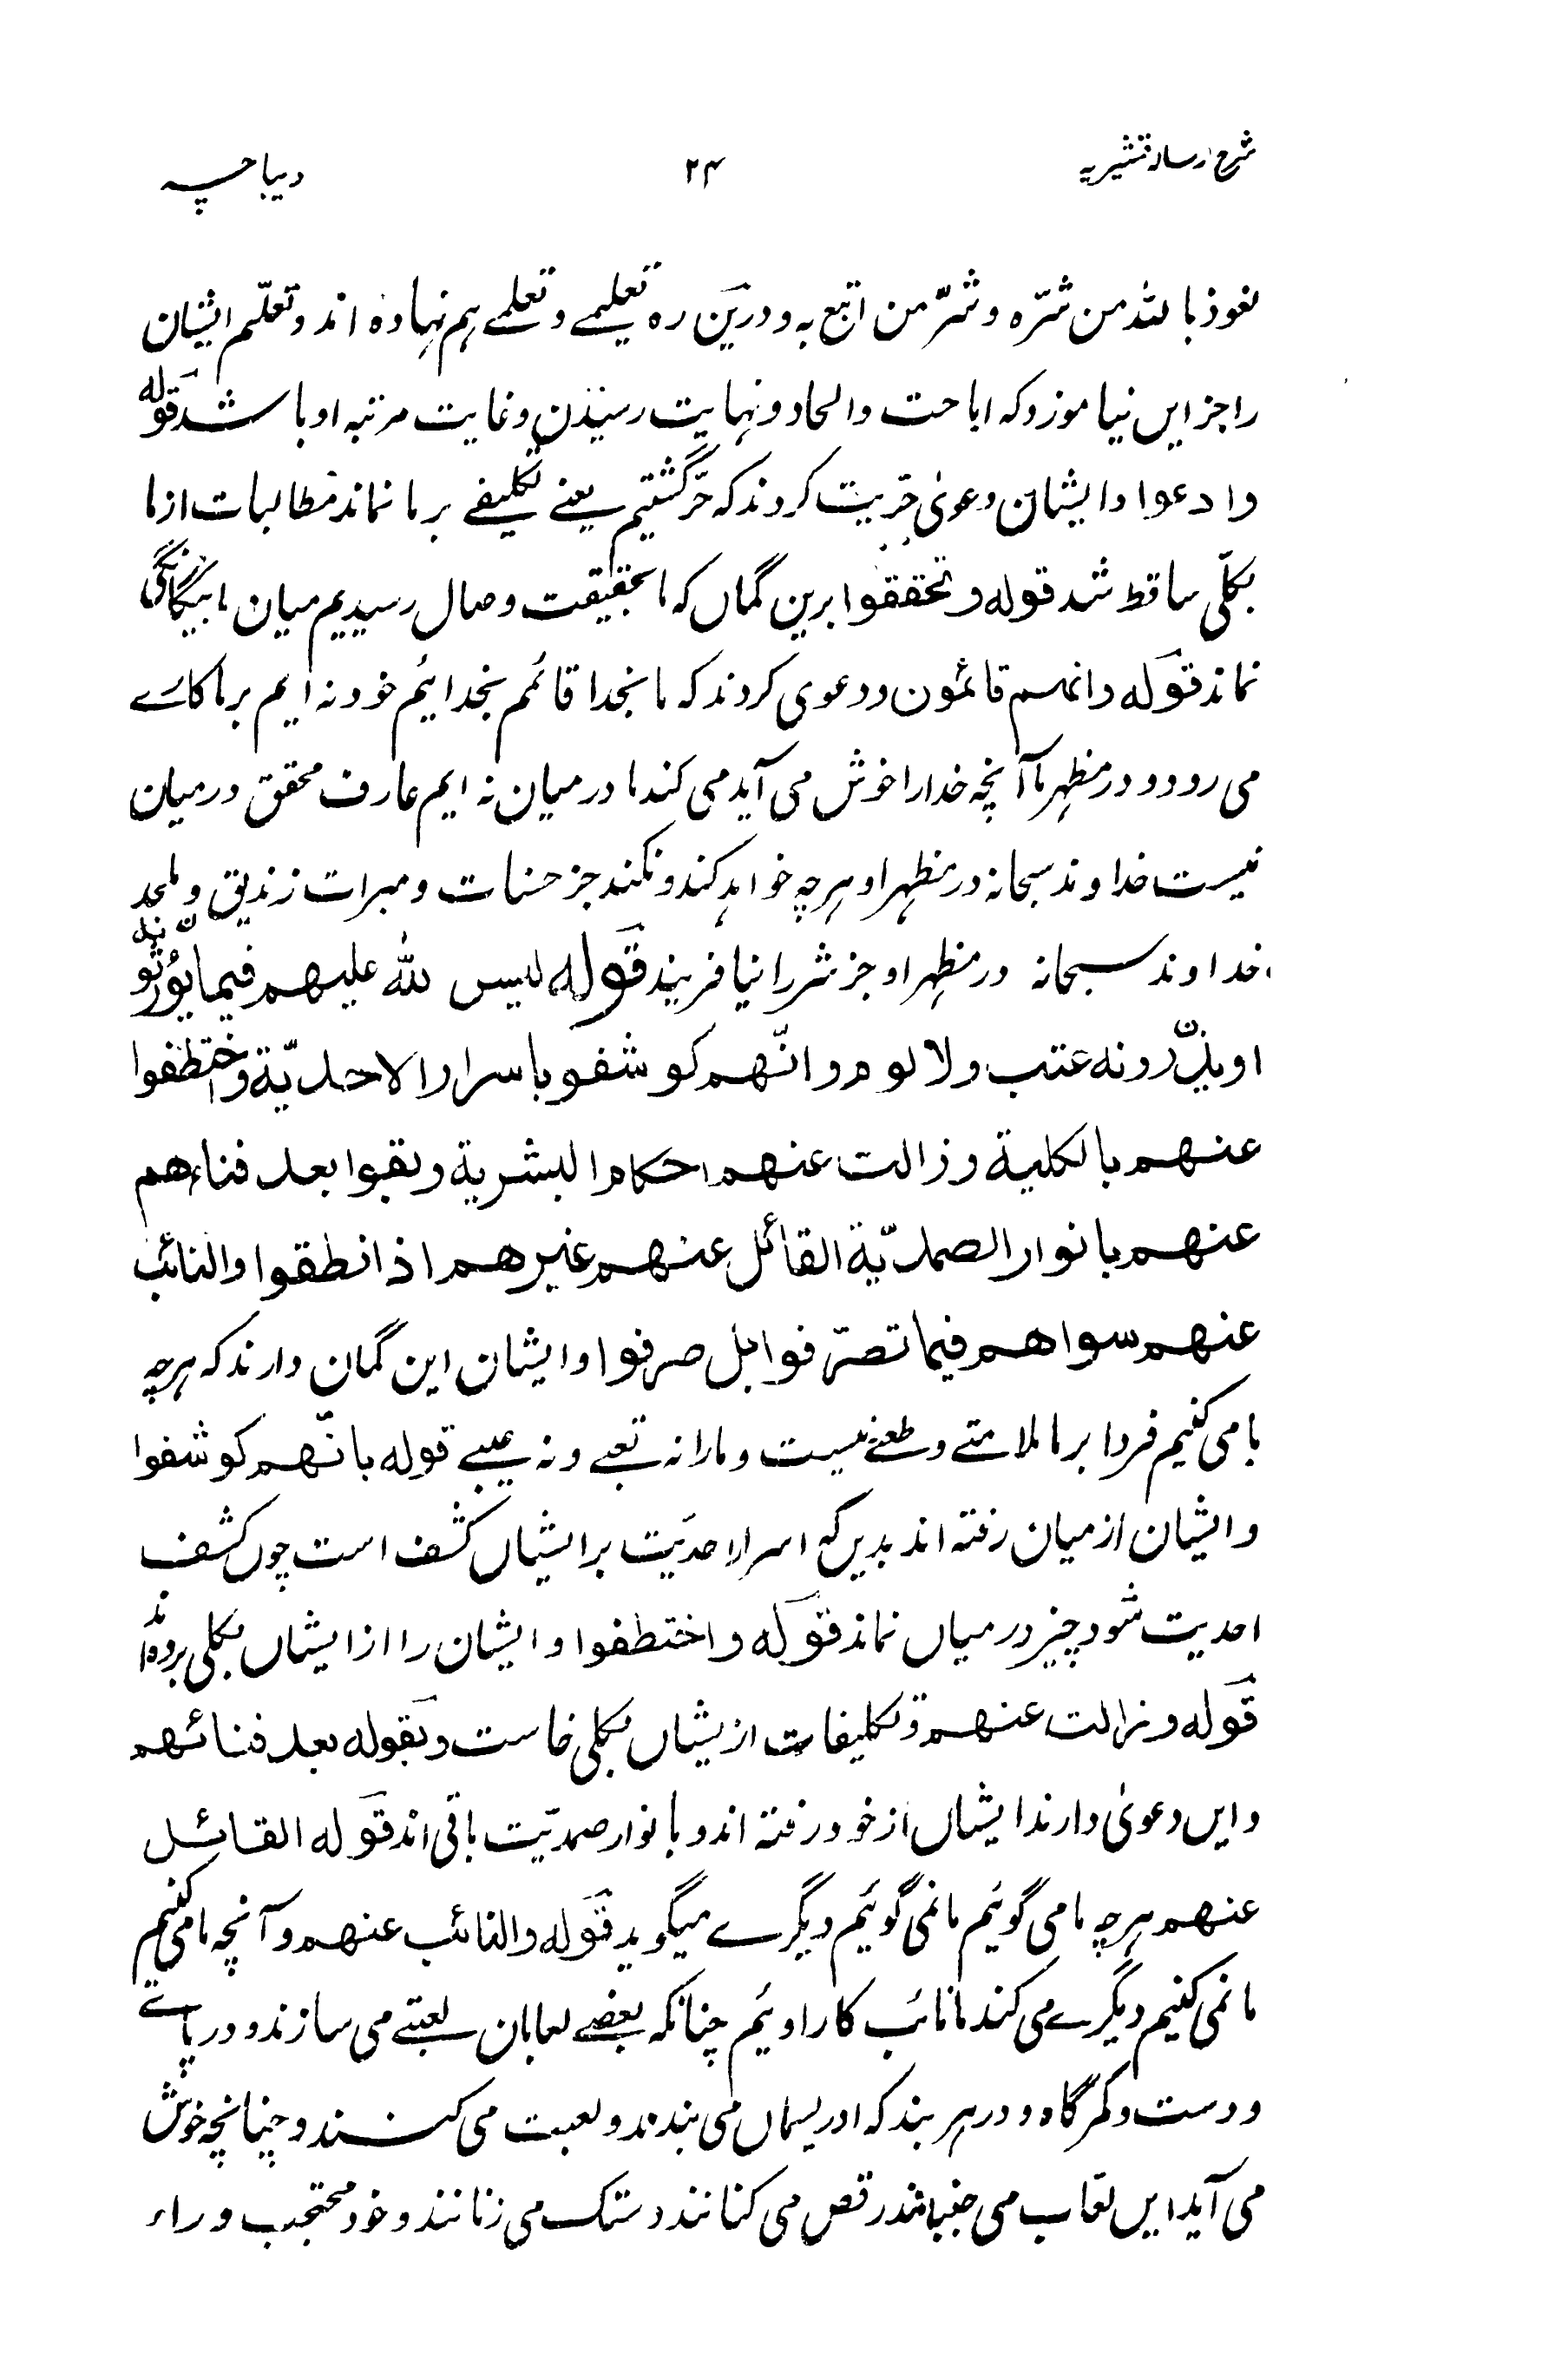 شرح رسالہ قشیریہ
۲۴
دیباچہ
نعوذ بالله من شرّه و شرّ من اتبع به و درین ره تعلیمے و تعلمے ہم نہاده اند و تعلّم ایشان
را جز ایں نیاموزد کہ اباحت و الحاد و نہایت رسیدن و غایت مرتبہ او باشد قوله
وادعوا وایشان دعویٰ حرّیت کردند کہ حرّ گشتیم یعنے تکلیفے بر ما نماند مطالبات از ما
بکلّی ساقط شد قوله و تحققوا برین گماں کہ ما بحقیقت وصال رسیدیم میان ما بیگانگی
نماند قوله وانهم قائمون و دعوی کردند کہ ما بخدا قائمم بخدائیم خود نہ ایم بر ما کارے
می رود و در مظہر ما آنچہ خدا را خوش می آید می کند ما درمیان نہ ایم عارف محقق درمیان
نیست خداوند سبحانہ در مظہر او ہرچہ خواہد کند و نکند جز حسنات و مبرات زندیق و ملحد
خداوند سبحانہ در مظہر او جز شر را نیافریند قوله لیس لله علیهم فیما یؤثرونه
او یذرونه عتب ولا لوم وانّهم کوشفو باسرار الاحدیّة واختطفوا
عنهم بالکلیة وزالت عنهم احکام البشریة وبقوا بعد فناءهم
عنهم بانوار الصمدیّة القائل عنهم غیرهم اذا نطقوا والنائب
عنهم سواهم فیما تصرّفوا بل صرفوا وایشان این گمان دارند کہ ہرچہ
ما می کنیم فردا بر ما ملامتے و طعنے نیست و ما را نہ تعبے و نہ عیبے قوله بانّهم کوشفوا
وایشان از میان رفتہ اند بدیں کہ اسرار احدیت بر ایشاں کشف است چوں کشف
احدیت شود چیز درمیاں نماند قوله واختطفوا وایشان را از ایشاں بکلی برده اند
قوله وزالت عنهم و تکلیفات از یشاں بکلی خاست و بقوله بعد فنائهم
و ایں دعویٰ دارند ایشاں از خود رفتہ اند و بانوار صمدیّت باقی اند قوله القائل
عنهم ہرچہ ما می گوئیم ما نمی گوئیم دیگرے میگوید قوله والنائب عنهم و آنچہ ما می کنیم
ما نمی کنیم دیگرے می کند ما نائب کار اوئیم چنانکہ بعضے لعابان لعبتے می سازند و در پائے
و دست و کمرگاه و در ہر بند کہ ادریسماں می بندند و لعبت می کنند و چنانچہ خوش
می آید ایں لعّاب می جنباند رقص می کنانند دستک می زنانند و خود محتجب وراء